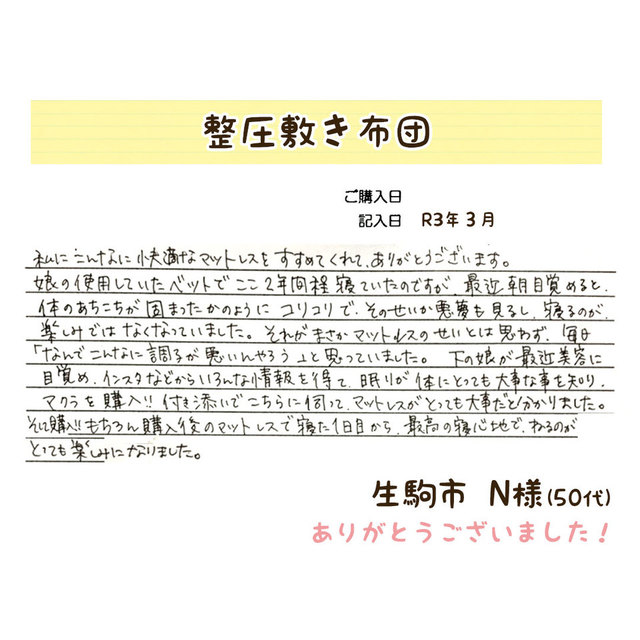 整圧敷き布団
ご購入日
記入日 R3年3月
私にこんなに快適なマットレスをすすめてくれて、ありがとうございます。
娘の使用していたベットでここ2年間程寝ていたのですが、最近朝目覚めると、
体のあちこちが固まったかのようにコリコリで、そのせいか悪夢も見るし、寝るのが
楽しみではなくなっていました。それがまさかマットレスのせいとは思わず、毎日
「なんでこんなに調子が悪いんやろう」と思っていました。 下の娘が最近美容に
目覚め、インスタなどからいろんな情報を得て、眠りが体にとっても大事な事を知り、
マクラを購入!!付き添いでこちらに伺って、マットレスがとっても大事だと分かりました。
そして購入!!もちろん購入後のマットレスで寝た1日目から、最高の寝心地で、ねるのが
とっても楽しみになりました。
生駒市 N様(50代)
ありがとうございました!